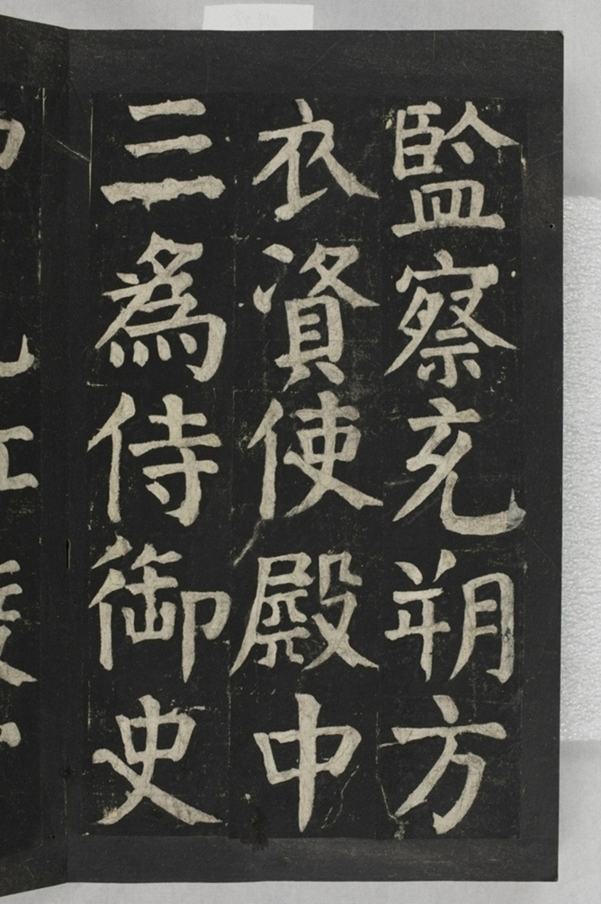 監察充朔方
衣資使殿中
三為侍御史